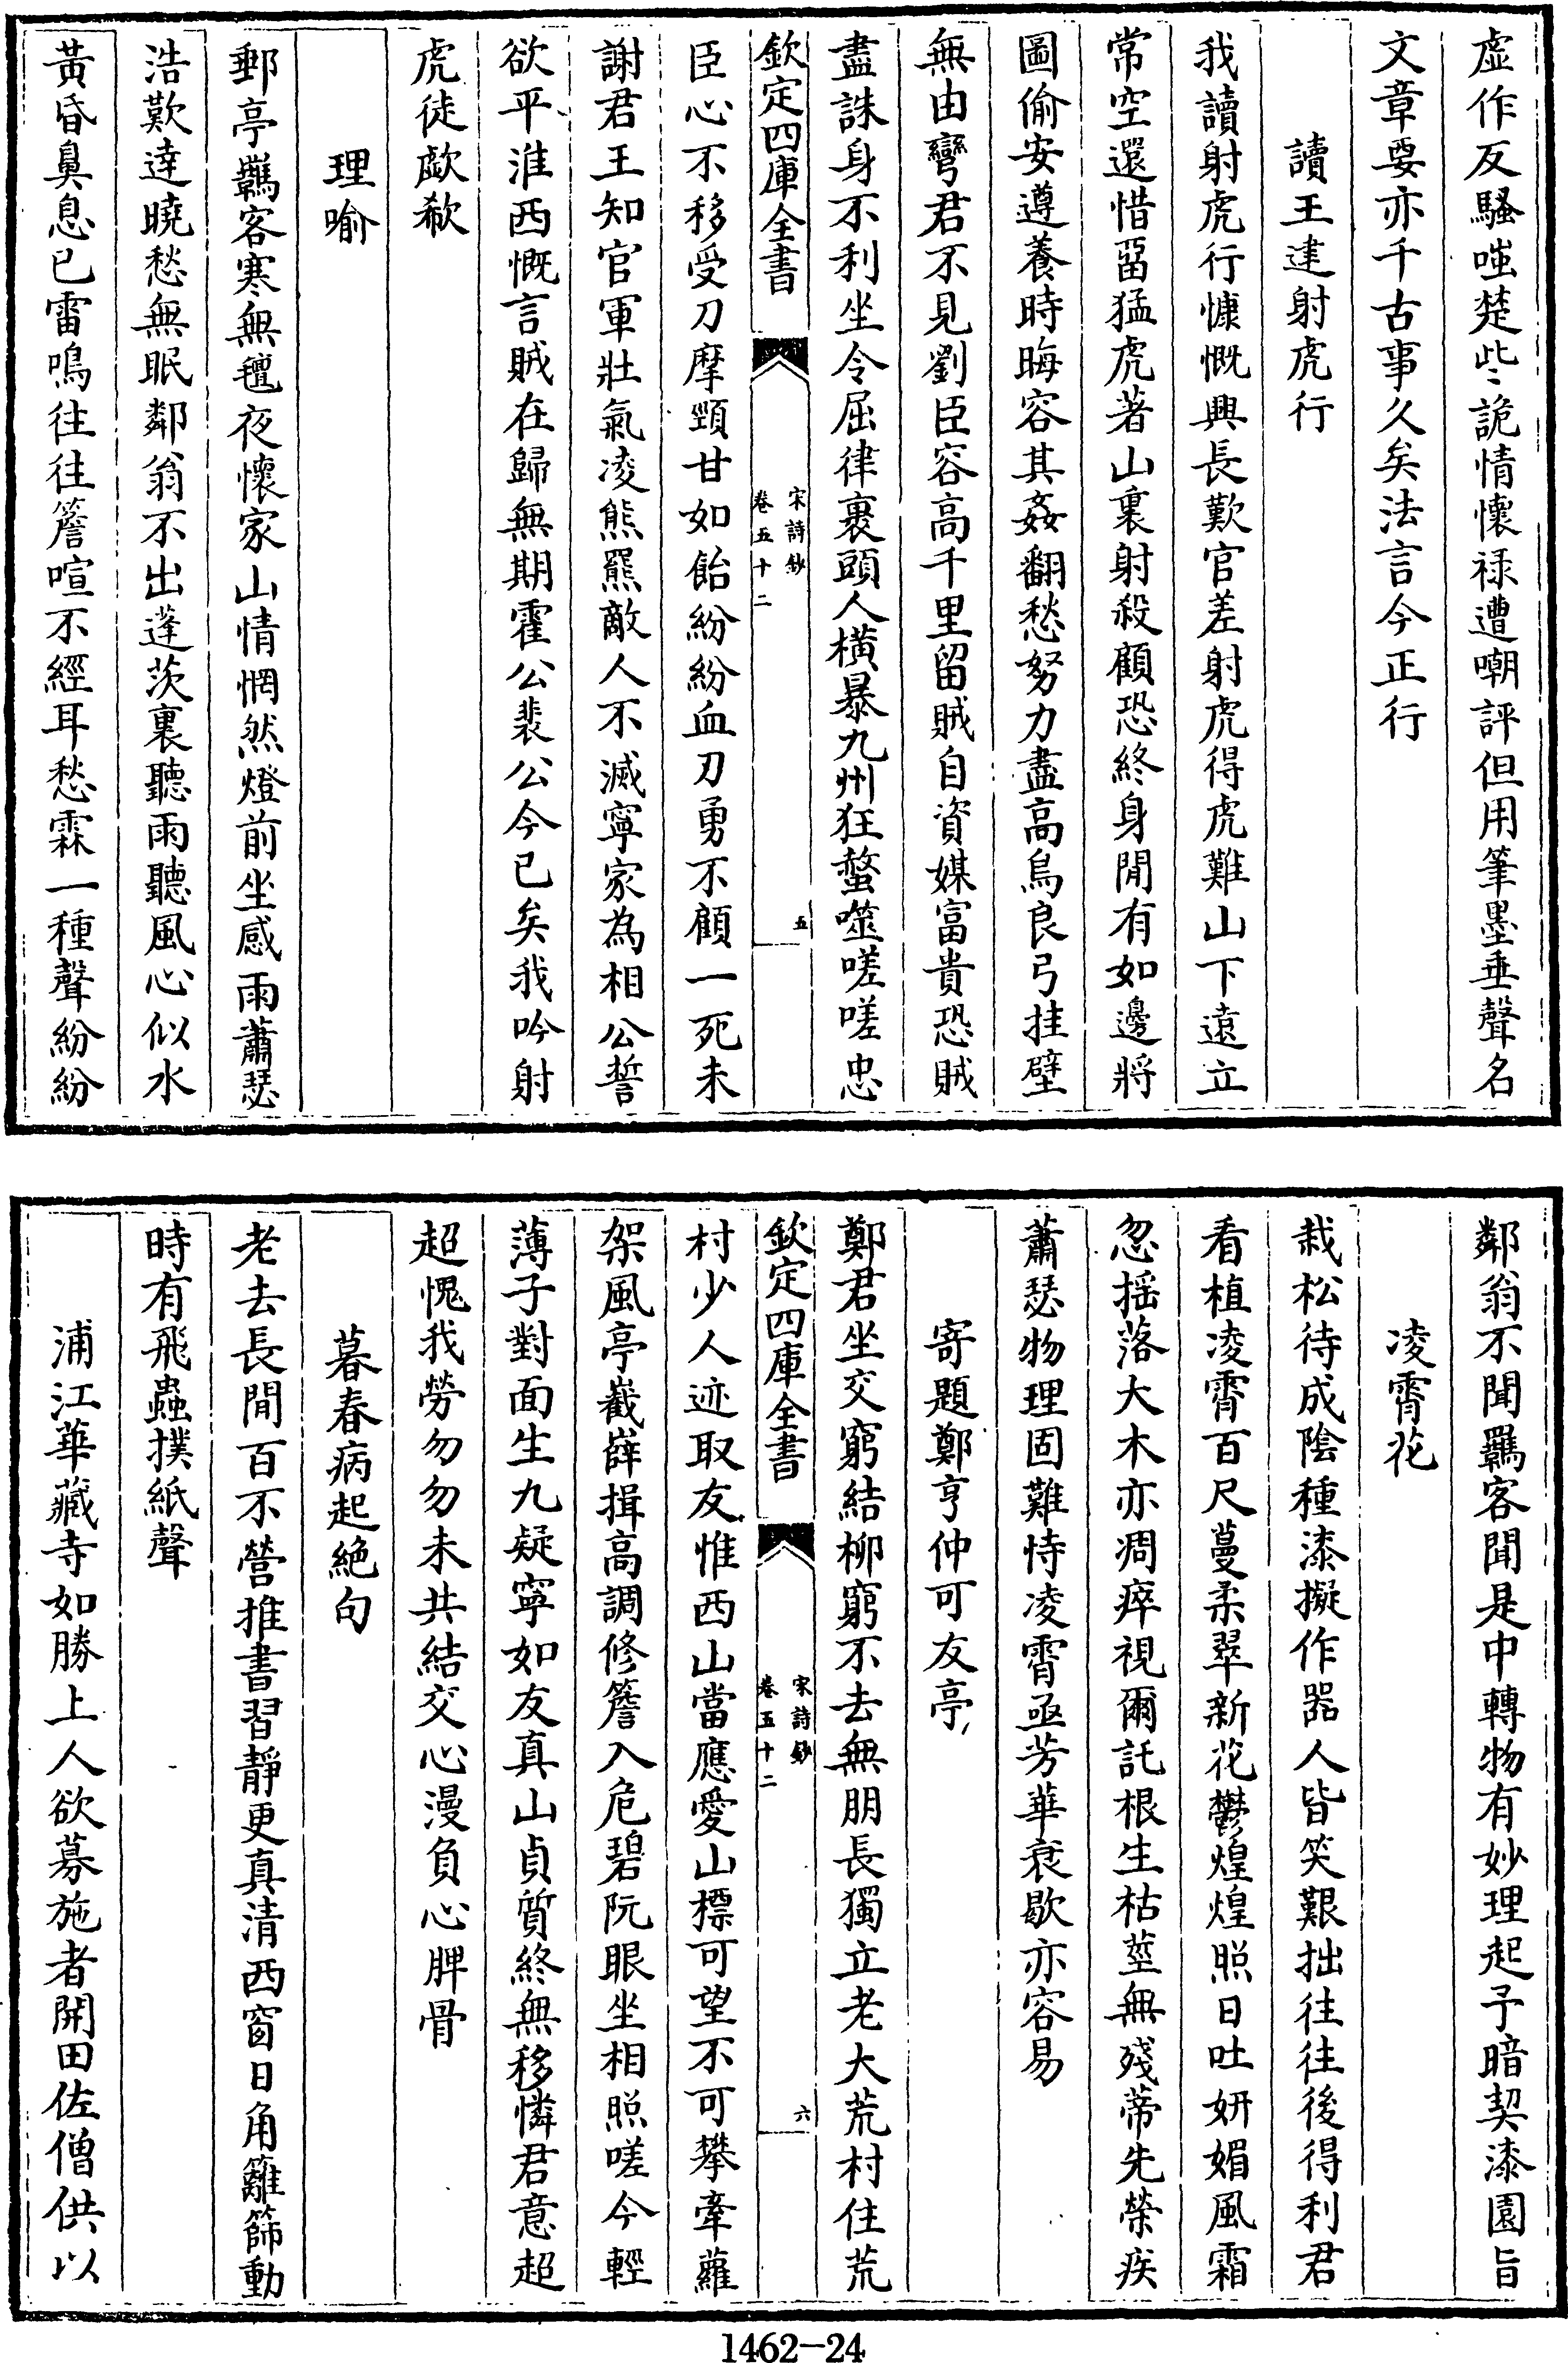 虛作反騷嗤楚些詭情懷祿遭嘲評但用筆墨垂聲名
文章要亦千古事久矣法言今正行
讀王建射虎行
我讀射虎行慷慨興長歎官差射虎得虎難山下遠立
常空還惜留猛虎著山裏射殺顧恐終身閒有如邊將
圖偷安遵養時晦容其姦翻愁努力盡高鳥良弓挂壁
無由彎君不見劉臣容高千里留賊自資媒富貴恐賊
盡誅身不利坐令屈律裹頭人橫暴九州狂螫噬嗟嗟忠
欽定四庫全書
宋詩鈔
卷五十二
五
臣心不移受刀摩頸甘如飴紛紛血刃勇不顧一死未
謝君王知官軍壯氣凌熊羆敵人不滅寧家為相公誓
欲平淮西慨言賊在歸無期霍公裴公今已矣我吟射
虎徒歔欷
理喻
郵亭羈客寒無氊夜懷家山情惘然燈前坐感雨蕭瑟
浩歎達曉愁無眠鄰翁不出蓬茨裏聽雨聽風心似水
黃昏鼻息已雷鳴往往簷喧不經耳愁霖一種聲紛紛
鄰翁不聞羈客聞是中轉物有妙理起予暗契漆園旨
凌霄花
栽松待成陰種漆擬作器人皆笑艱拙往往後得利君
看植凌霄百尺蔓柔翠新花鬱煌煌照日吐妍媚風霜
忽揺落大木亦凋瘁視爾託根生枯莖無殘蒂先榮疾
蕭瑟物理固難恃凌霄亟芳華衰歇亦容易
寄題鄭亨仲可友亭
鄭君坐交窮結柳窮不去無朋長獨立老大荒村住荒
欽定四庫全書
宋詩鈔
卷五十二
六
村少人迹取友惟西山當應愛山標可望不可攀牽蘿
架風亭巀嶭揖高調修簷入危碧阮眼坐相照嗟今輕
薄子對面生九疑寧如友真山貞質終無移憐君意超
超愧我勞勿勿未共結交心漫負心脾骨
暮春病起絕句
老去長閒百不營推書習靜更真清西窗日角籬篩動
時有飛蟲撲紙聲
浦江華藏寺如勝上人欲募施者開田佐僧供以
1462-24